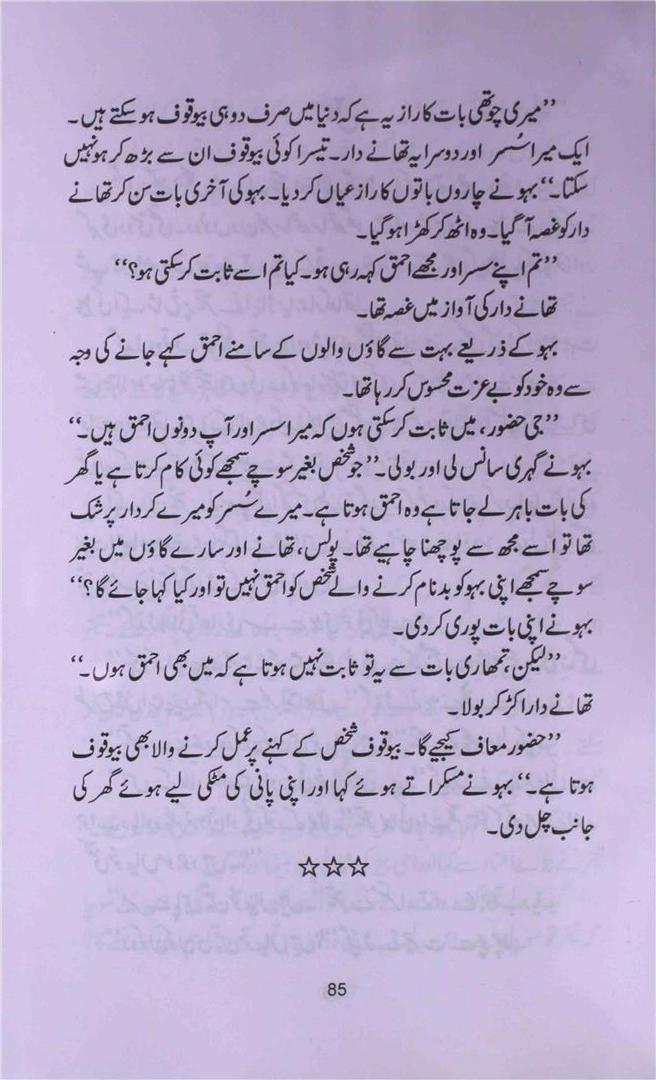 ’’میری چوتھی بات کا راز یہ ہے کہ دنیا میں صرف دو ہی بیوقوف ہو سکتے ہیں۔
ایک میرا سُسر اور دوسرا یہ تھانے دار۔ تیسرا کوئی بیوقوف ان سے بڑھ کر ہو نہیں
سکتا۔‘‘ بہو نے چاروں باتوں کا راز عیاں کر دیا۔ بہو کی آخری بات سن کر تھانے
دار کو غصہ آ گیا۔ وہ اٹھ کر کھڑا ہو گیا۔
’’تم اپنے سسر اور مجھے احمق کہہ رہی ہو۔ کیا تم اسے ثابت کر سکتی ہو؟‘‘
تھانے دار کی آواز میں غصہ تھا۔
بہو کے ذریعے بہت سے گاؤں والوں کے سامنے احمق کہے جانے کی وجہ
سے وہ خود کو بے عزت محسوس کر رہا تھا۔
’’جی حضور، میں ثابت کر سکتی ہوں کہ میرا سسر اور آپ دونوں احمق ہیں۔‘‘
بہو نے گہری سانس لی اور بولی۔ ’’جو شخص بغیر سوچے سمجھے کوئی کام کرتا ہے یا گھر
کی بات باہر لے جاتا ہے وہ احمق ہوتا ہے۔ میرے سُسر کو میرے کردار پر شک
تھا تو اسے مجھ سے پوچھنا چاہیے تھا۔ پولس، تھانے اور سارے گاؤں میں بغیر
سوچے سمجھے اپنی بہو کو بدنام کرنے والے شخص کو احمق نہیں تو اور کیا کہا جائے گا؟‘‘
بہو نے اپنی بات پوری کر دی۔
’’لیکن تمھاری بات سے یہ تو ثابت نہیں ہوتا ہے کہ میں بھی احمق ہوں۔‘‘
تھانے دار اکڑ کر بولا۔
’’حضور معاف کیجیے گا۔ بیوقوف شخص کے کہنے پر عمل کرنے والا بھی بیوقوف
ہوتا ہے۔‘‘ بہو نے مسکراتے ہوئے کہا اور اپنی پانی کی مٹکی لیے ہوئے گھر کی
جانب چل دی۔
☆☆☆
85